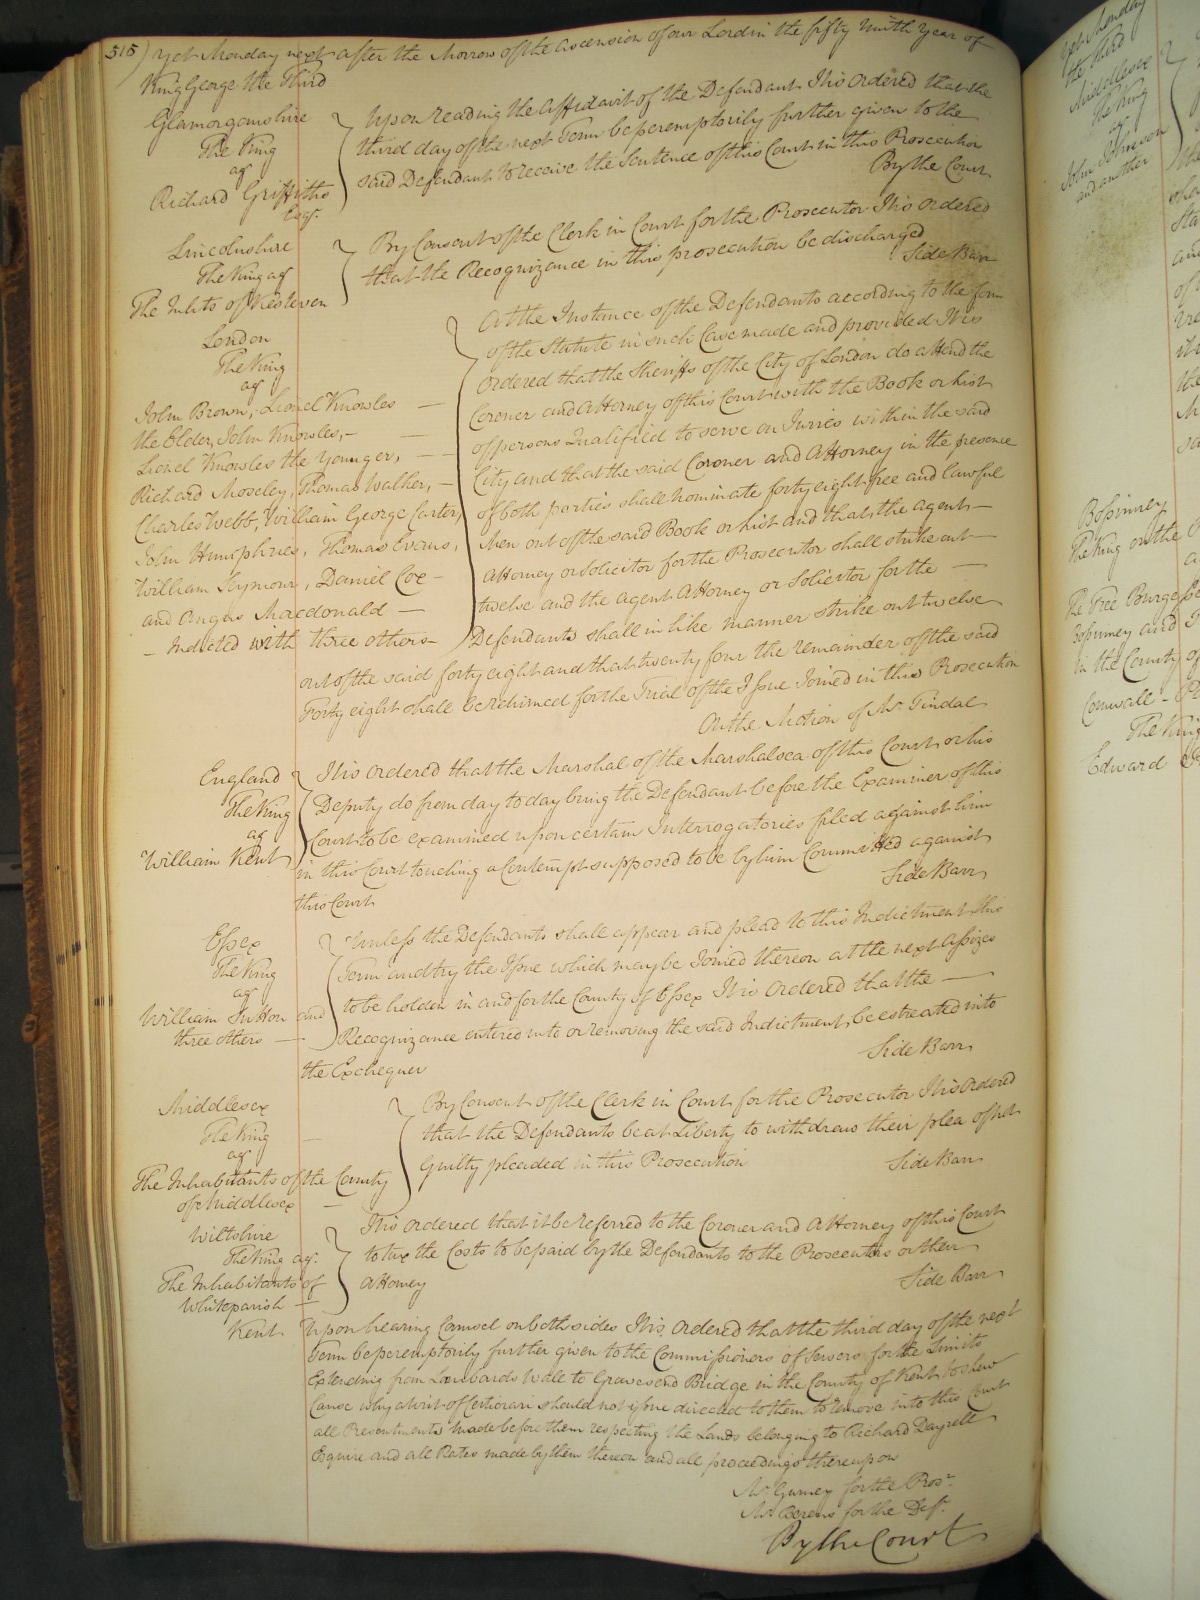 515) Yet Monday next after the Morrow of the Ascension of our Lord in the fifty ninth Year of
King George the Third
Glamorganshire
The King
agt
Richard Griffiths
Esqr.
Upon reading the Affidavit of the Defendant It is Ordered that the
third day of the next Term be peremptorily further given to the
said Defendant to receive the Sentence of this Court in this Prosecution
By the Court
Lincolnshire
The King agt
The Inhts of Kesteven
By Consent of the Clerk in Court for the Prosecutor It is Ordered
that the Recognizance in this prosecution be discharged
Side Barr
London
The King
agt
John Brown, Lionel Knowles —
the Elder, John Knowles, —
Lionel Knowles the Younger, —
Richard Moseley, Thomas Walker, —
Charles Webb, William George Carter,
John Humphries, Thomas Evans,
William Seymour, Daniel Cox —
and Angus Macdonald —
— Indicted with three others —
At the Instance of the Defendants according to the form
of the Statute in such Case made and provided It is
Ordered that the Sheriffs of the City of London do attend the
Coroner and Attorney of this Court with the Book or List
of persons Qualified to serve on Juries within the said
City and that the said Coroner and Attorney in the presence
of both parties shall nominate forty eight free and lawful
Men out of the said Book or List and that the agent —
Attorney or Solicitor for the Prosecutor shall strike out —
twelve and the agent Attorney or Solicitor for the —
Defendants shall in like manner strike out twelve
out of the said forty eight and that twenty four the remainder of the said
Forty eight shall be returned for the Trial of the Issue Joined in this Prosecution
On the Motion of Mr. Tindal
England
The King
agt
William Kent
It is Ordered that the Marshal of the Marshalsea of this Court or his
Deputy do from day to day bring the Defendant before the Examiner of this
Court to be examined upon certain Interrogatories filed against him
in this Court touching a Contempt supposed to be by him Committed against
this Court
Side Barr
Essex
The King
agt
William Sutton and
three others —
Unless the Defendants shall appear and plead to this Indictment this
Term and try the Issue which may be Joined thereon at the next Assizes
to be holden in and for the County of Essex It is Ordered that the —
Recognizance entered into on removing the said Indictment, be estreated into
the Exchequer
Side Barr
Middlesex
The King —
agt
The Inhabitants of the County
of Middlesex —
By Consent of the Clerk in Court for the Prosecutor It is Ordered
that the Defendants be at Liberty to withdraw their plea of not
Guilty pleaded in this Prosecution
Side Barr
Wiltshire
The King agt.
The Inhabitants of
Whiteparish —
It is Ordered that it be referred to the Coroner and Attorney of this Court
to tax the Costs to be paid by the Defendants to the Prosecutors or their
Attorney
Side Barr
Kent
Upon hearing Counsel on both sides It is Ordered that the third day of the next
Term be peremptorily further given to the Commissioners of Sewers for the Limits
Extending from Lombards Wall to Gravesend Bridge in the County of Kent to shew
Cause why a Writ of Certiorari should not issue directed to them to remove into this Court
all Presentments made before them respecting the Lands belonging to Richard Dayrell
Esquire and all Rates made by them thereon and all proceedings thereupon
Mr. Gurney for the Prosr.
Mr. Berens for the Deft.
By the Court
Yet Monday
the Third
Middlesex
The King
agt
John Johnson
and another
Bossinney
The King on the
The Free Burgesses
Bossinney and
in the County of
Cornwall —
The King
Edward